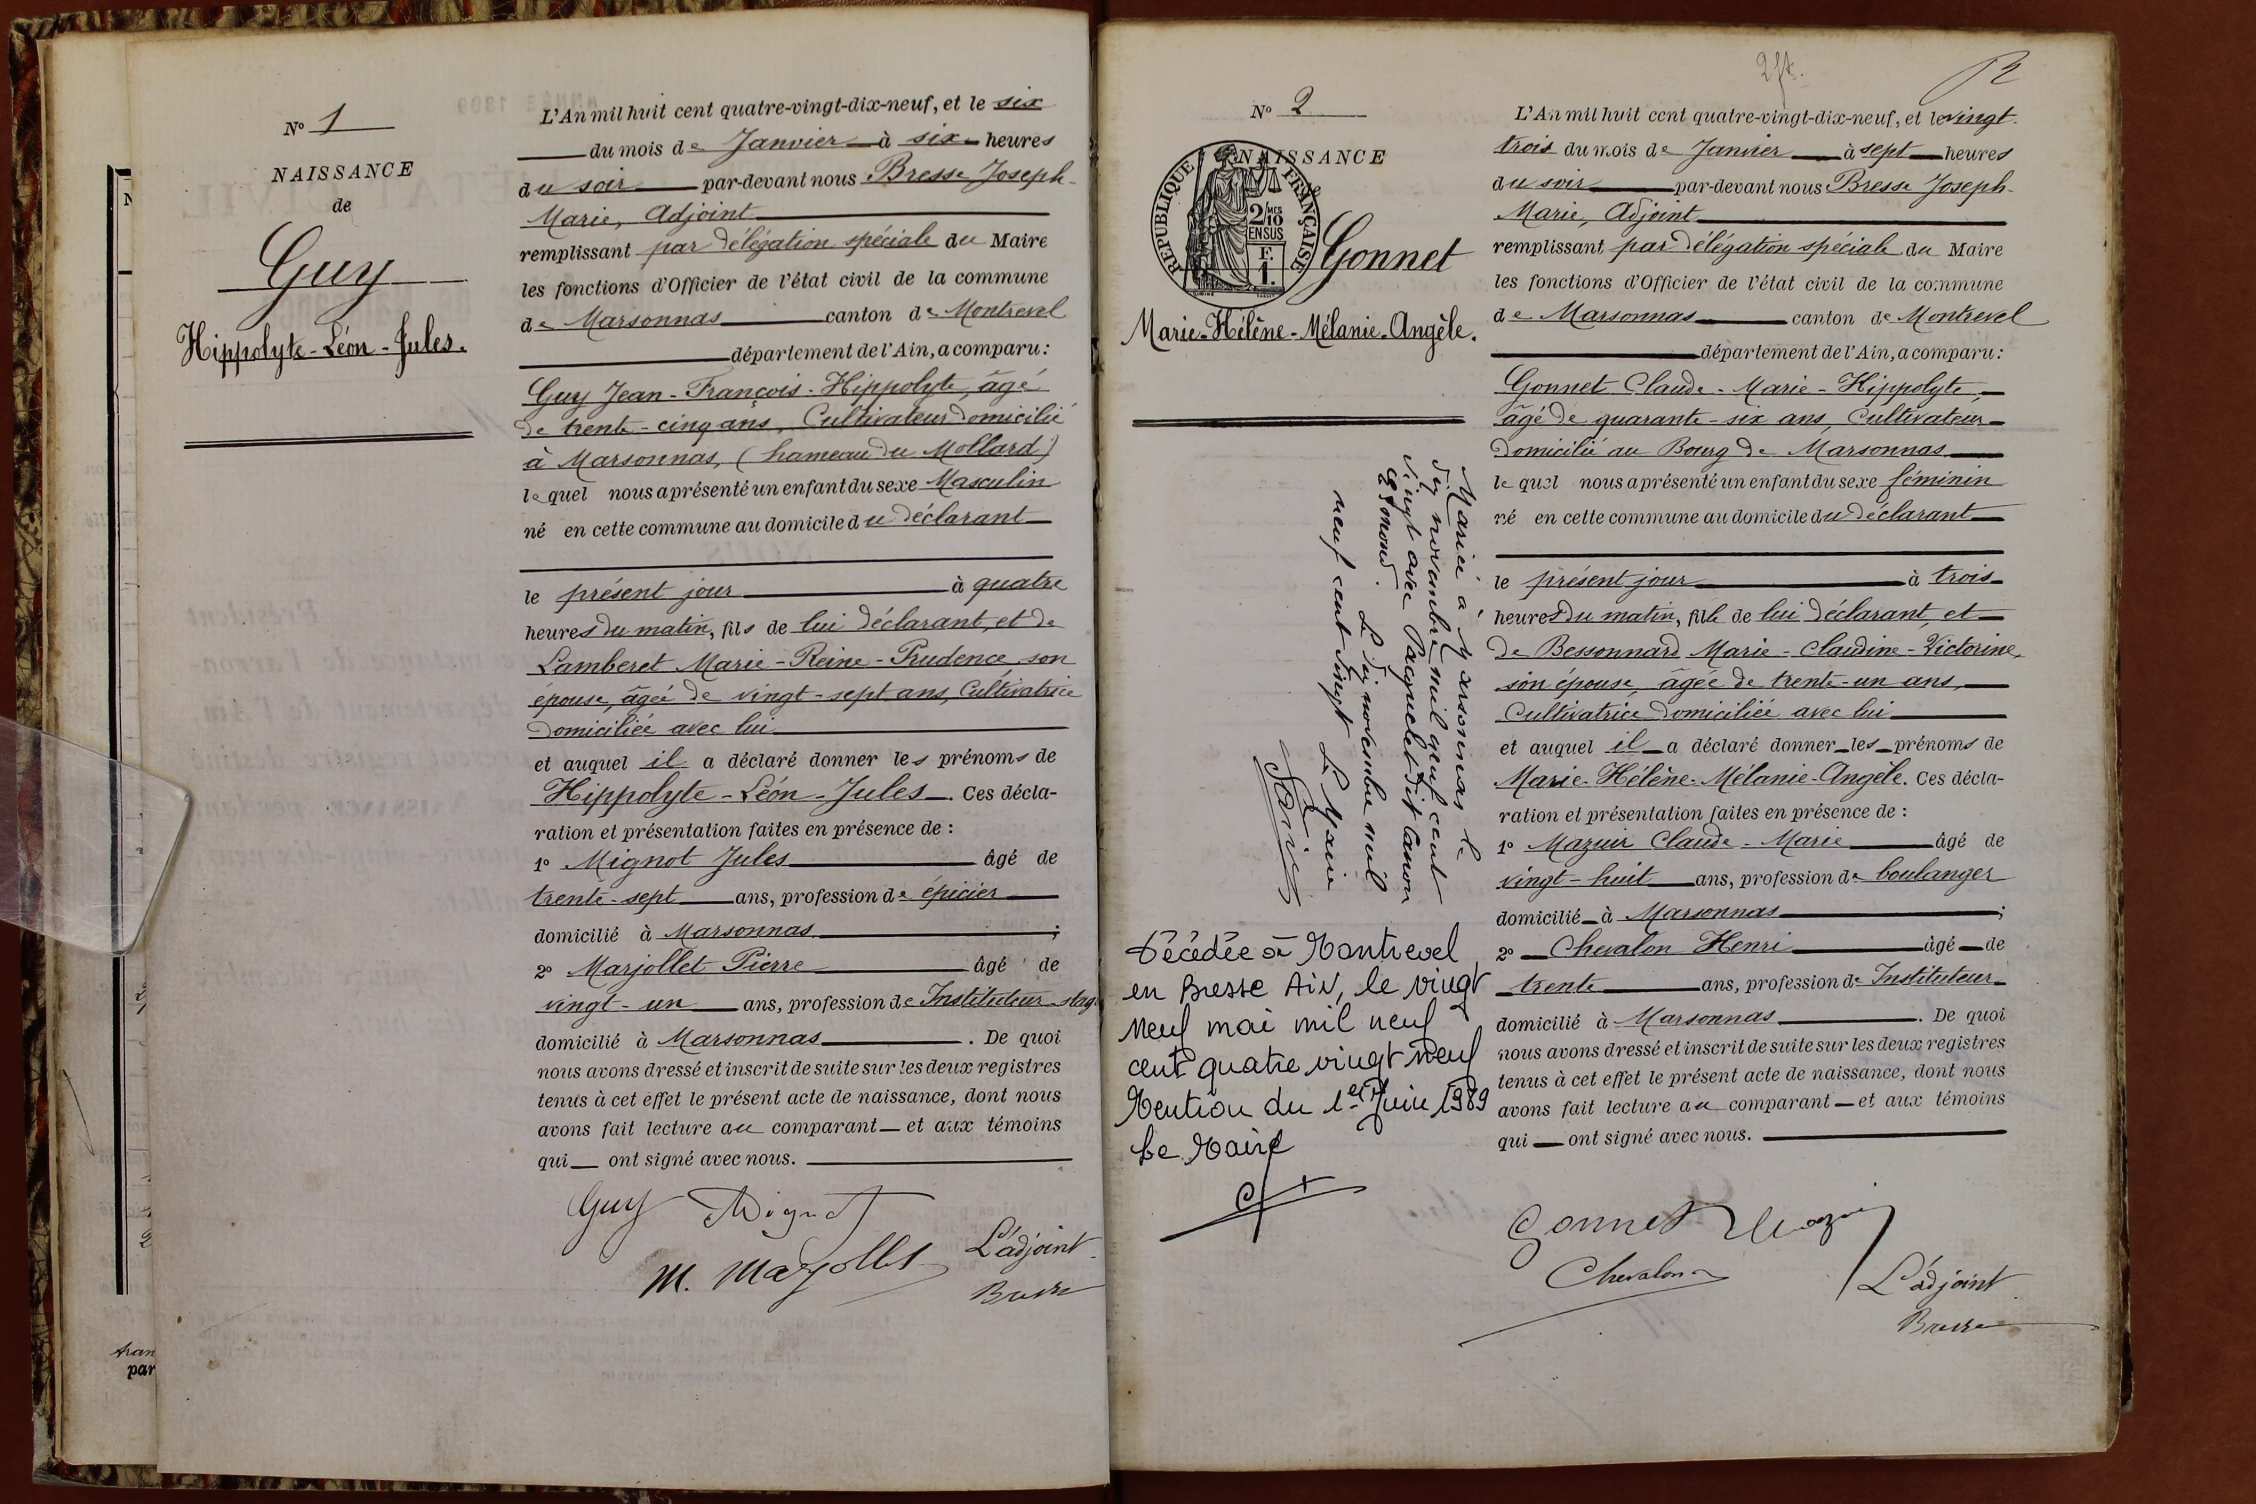 N° 1
NAISSANCE
de
Guy
Hippolyte-Léon-Jules.
L'An mil huit cent quatre-vingt-dix-neuf, et le six
du mois de Janvier à six heures
du soir par-devant nous Bresse Joseph-
Marie, Adjoint
remplissant par délégation spéciale du Maire
les fonctions d'Officier de l'état civil de la commune
de Marsonnas canton de Montrevel
département de l'Ain, a comparu :
Guy Jean-François-Hippolyte, âgé
de trente-cinq ans, Cultivateur domicilié
à Marsonnas, (hameau du Mollard)
lequel nous a présenté un enfant du sexe Masculin
né en cette commune au domicile du déclarant
le présent jour à quatre
heures du matin, fils de lui déclarant, et de
Lamberet Marie-Reine-Prudence, son
épouse, âgée de vingt-sept ans, Cultivatrice
domiciliée avec lui
et auquel il a déclaré donner les prénoms de
Hippolyte-Léon-Jules. Ces décla-
ration et présentation faites en présence de :
1° Mignot Jules âgé de
trente-sept ans, profession de épicier
domicilié à Marsonnas ;
2° Marjollet Pierre âgé de
vingt-un ans, profession de Instituteur-stag
domicilié à Marsonnas. De quoi
nous avons dressé et inscrit de suite sur les deux registres
tenus à cet effet le présent acte de naissance, dont nous
avons fait lecture au comparant et aux témoins
qui ont signé avec nous.
Guy Mignot
M. Marjollet L'adjoint
Bresse
2
N° 2
NAISSANCE
RÉPUBLIQUE FRANÇAISE
2/10 MES
EN SUS
F.
1.
Gonnet
Marie-Hélène-Mélanie-Angèle.
Mariée à Marsonnas le
dix novembre mil neuf cent
vingt avec Paquelet dit Canon
Edmond. Le dix novembre mil
neuf cent vingt Le Maire
Décédée à Montrevel
en Bresse AIN, le vingt
neuf mai mil neuf
cent quatre vingt neuf
Mention du 1er Juin 1989
Le Maire
L'An mil huit cent quatre-vingt-dix-neuf, et le vingt
trois du mois de Janvier à sept heures
du soir par-devant nous Bresse Joseph-
Marie, Adjoint
remplissant par délégation spéciale du Maire
les fonctions d'Officier de l'état civil de la commune
de Marsonnas canton de Montrevel
département de l'Ain, a comparu :
Gonnet Claude-Marie-Hippolyte,
âgé de quarante-six ans, Cultivateur
domicilié au Bourg de Marsonnas
lequel nous a présenté un enfant du sexe féminin
né en cette commune au domicile du déclarant
le présent jour à trois
heures du matin, fille de lui déclarant, et
de Bessonnard Marie-Claudine-Victorine,
son épouse, âgée de trente-un ans,
Cultivatrice domiciliée avec lui
et auquel il a déclaré donner les prénoms de
Marie-Hélène-Mélanie-Angèle. Ces décla-
ration et présentation faites en présence de :
1° Mazuir Claude-Marie âgé de
vingt-huit ans, profession de boulanger
domicilié à Marsonnas ;
2° Chevalon Henri âgé de
trente ans, profession de Instituteur
domicilié à Marsonnas. De quoi
nous avons dressé et inscrit de suite sur les deux registres
tenus à cet effet le présent acte de naissance, dont nous
avons fait lecture au comparant et aux témoins
qui ont signé avec nous.
Gonnet Mazuir
Chevalon L'adjoint
Bresse